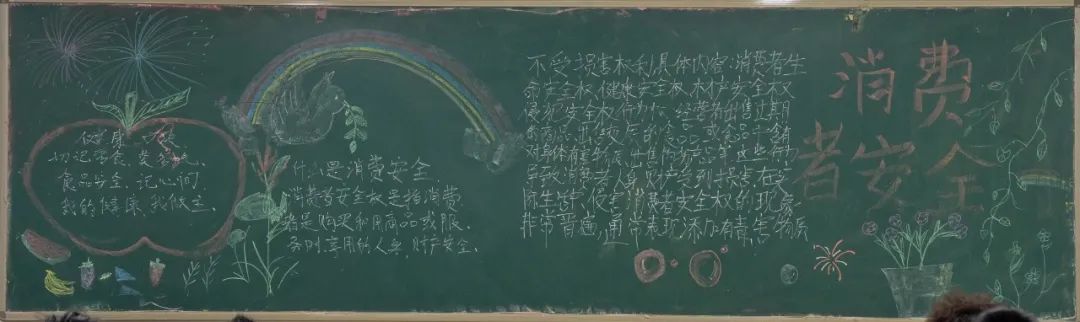 消费
者安全
健康
切记零食
食品安全、记心间
我的健康、我做主
什么是消费安全
消费者安全权是指消费
者在购买利用商品或服
务时享用的人身、财产安全、
不受损害权利具体内容:消费者生
命安全权、健康安全权、财产安全权
侵犯安全权行为、经营者出售过期
的 变质的食品或食品中含有
对身体有害物质 出售的 等这些行为
导致消费者人身财产受到损害、在实
际生活中、侵害消费者安全权的现象
非常普遍,通常表现添加有毒、害物质